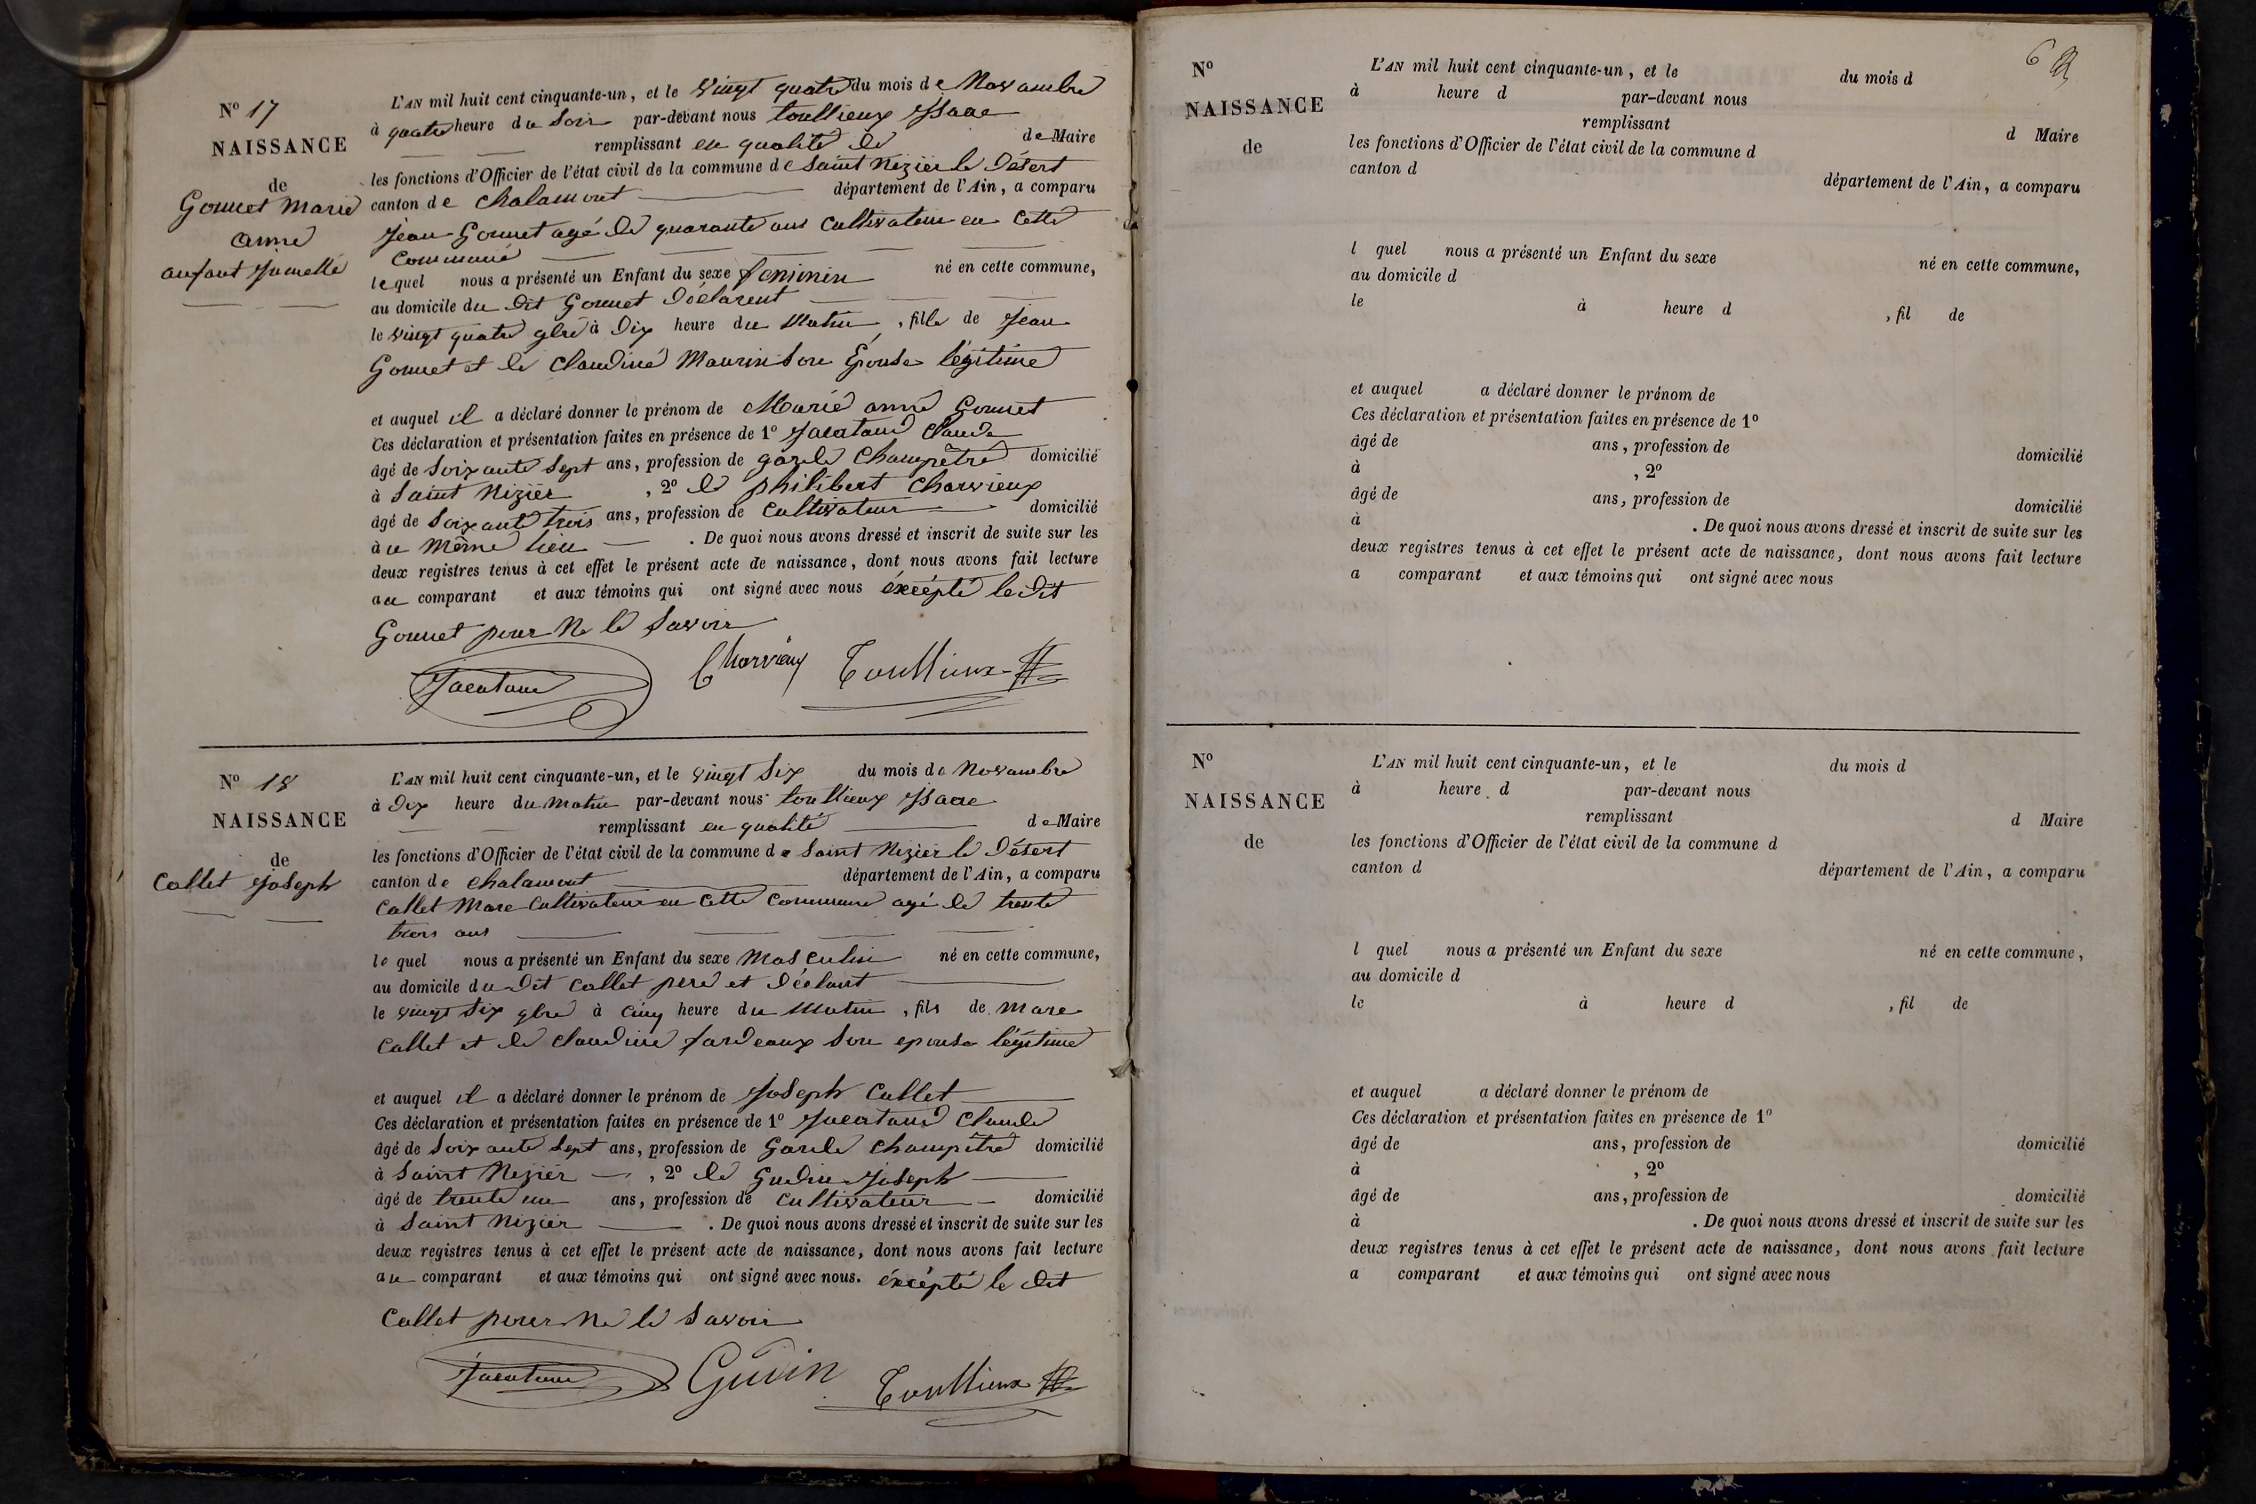 N° 17
NAISSANCE
de
Gonnet Marie
anne
anfant Jumelle
L'AN mil huit cent cinquante-un, et le vingt quatre du mois de Novambre
à quatre heure du Soir par-devant nous toullieux Isaac
remplissant en qualité de de Maire
les fonctions d'Officier de l'état civil de la commune de Saint Nizier le Désert
canton de chalamont département de l'Ain, a comparu
Jean Gonnet agé de quarante ans Cultivateur en cette
Commune
lequel nous a présenté un Enfant du sexe feminin né en cette commune,
au domicile du Dit Gonnet Déclarent
le vingt quatre 9bre à Dix heure du Matin, fille de Jean
Gonnet et de Claudine Maurin Son Épouse légitime
et auquel il a déclaré donner le prénom de Marie anne Gonnet
Ces déclaration et présentation faites en présence de 1° Claude
âgé de Soixante Sept ans, profession de garde Champêtre domicilié
à Saint Nizier, 2° de philibert Charvieux
âgé de Soixante trois ans, profession de Cultivateur domicilié
au Même lieu. De quoi nous avons dressé et inscrit de suite sur les
deux registres tenus à cet effet le présent acte de naissance, dont nous avons fait lecture
au comparant et aux témoins qui ont signé avec nous éxcépté le Dit
Gonnet pour Ne le Savoir
Charvieux Toullieux
N° 18
NAISSANCE
de
Collet Joseph
L'AN mil huit cent cinquante-un, et le vingt Six du mois de Novambre
à Dix heure du Matin par-devant nous toullieux Isaac
remplissant en qualité de Maire
les fonctions d'Officier de l'état civil de la commune de Saint Nizier le Désert
canton de Chalamont département de l'Ain, a comparu
Collet Marc Cultivateur en cette Commune agé de trente
trois ans
lequel nous a présenté un Enfant du sexe Masculin né en cette commune,
au domicile du Dit Collet pere et Déclant
le vingt Six 9bre à Cinq heure du Matin, fils de Marc
Collet et de Claudine fardeaux Son epouse légitime
et auquel il a déclaré donner le prénom de Joseph Collet
Ces déclaration et présentation faites en présence de 1° Claude
âgé de Soixante Sept ans, profession de Garde Champêtre domicilié
à Saint Nizier, 2° de Gudin Joseph
âgé de trente un ans, profession de Cultivateur domicilié
à Saint Nizier. De quoi nous avons dressé et inscrit de suite sur les
deux registres tenus à cet effet le présent acte de naissance, dont nous avons fait lecture
au comparant et aux témoins qui ont signé avec nous. éxcépté le Dit
Collet pour Ne le Savoir
Toullieux
6
N°
NAISSANCE
de
L'AN mil huit cent cinquante-un, et le du mois d
à heure d par-devant nous
remplissant d Maire
les fonctions d'Officier de l'état civil de la commune d
canton d département de l'Ain, a comparu
l quel nous a présenté un Enfant du sexe né en cette commune,
au domicile d
le à heure d , fil de
et auquel a déclaré donner le prénom de
Ces déclaration et présentation faites en présence de 1°
âgé de ans, profession de domicilié
à , 2°
âgé de ans, profession de domicilié
à . De quoi nous avons dressé et inscrit de suite sur les
deux registres tenus à cet effet le présent acte de naissance, dont nous avons fait lecture
a comparant et aux témoins qui ont signé avec nous
N°
NAISSANCE
de
L'AN mil huit cent cinquante-un, et le du mois d
à heure d par-devant nous
remplissant d Maire
les fonctions d'Officier de l'état civil de la commune d
canton d département de l'Ain, a comparu
l quel nous a présenté un Enfant du sexe né en cette commune,
au domicile d
le à heure d , fil de
et auquel a déclaré donner le prénom de
Ces déclaration et présentation faites en présence de 1°
âgé de ans, profession de domicilié
à , 2°
âgé de ans, profession de domicilié
à . De quoi nous avons dressé et inscrit de suite sur les
deux registres tenus à cet effet le présent acte de naissance, dont nous avons fait lecture
a comparant et aux témoins qui ont signé avec nous